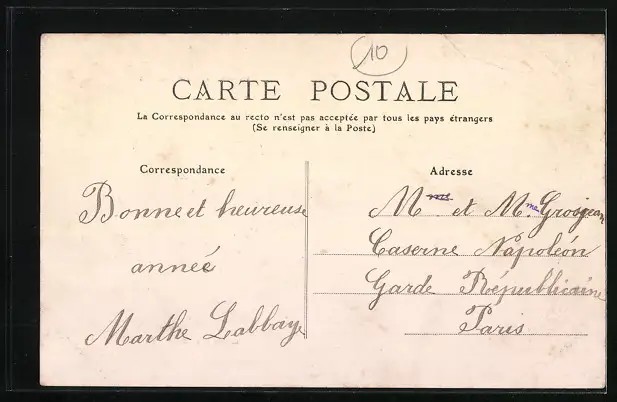 10
CARTE POSTALE
La Correspondance au recto n'est pas acceptée par tous les pays étrangers
(Se renseigner à la Poste)
Correspondance
Bonne et heureuse
année
Marthe Labbaye
Adresse
M et Mme Grosjean
Caserne Napoléon
Garde Républicaine
Paris